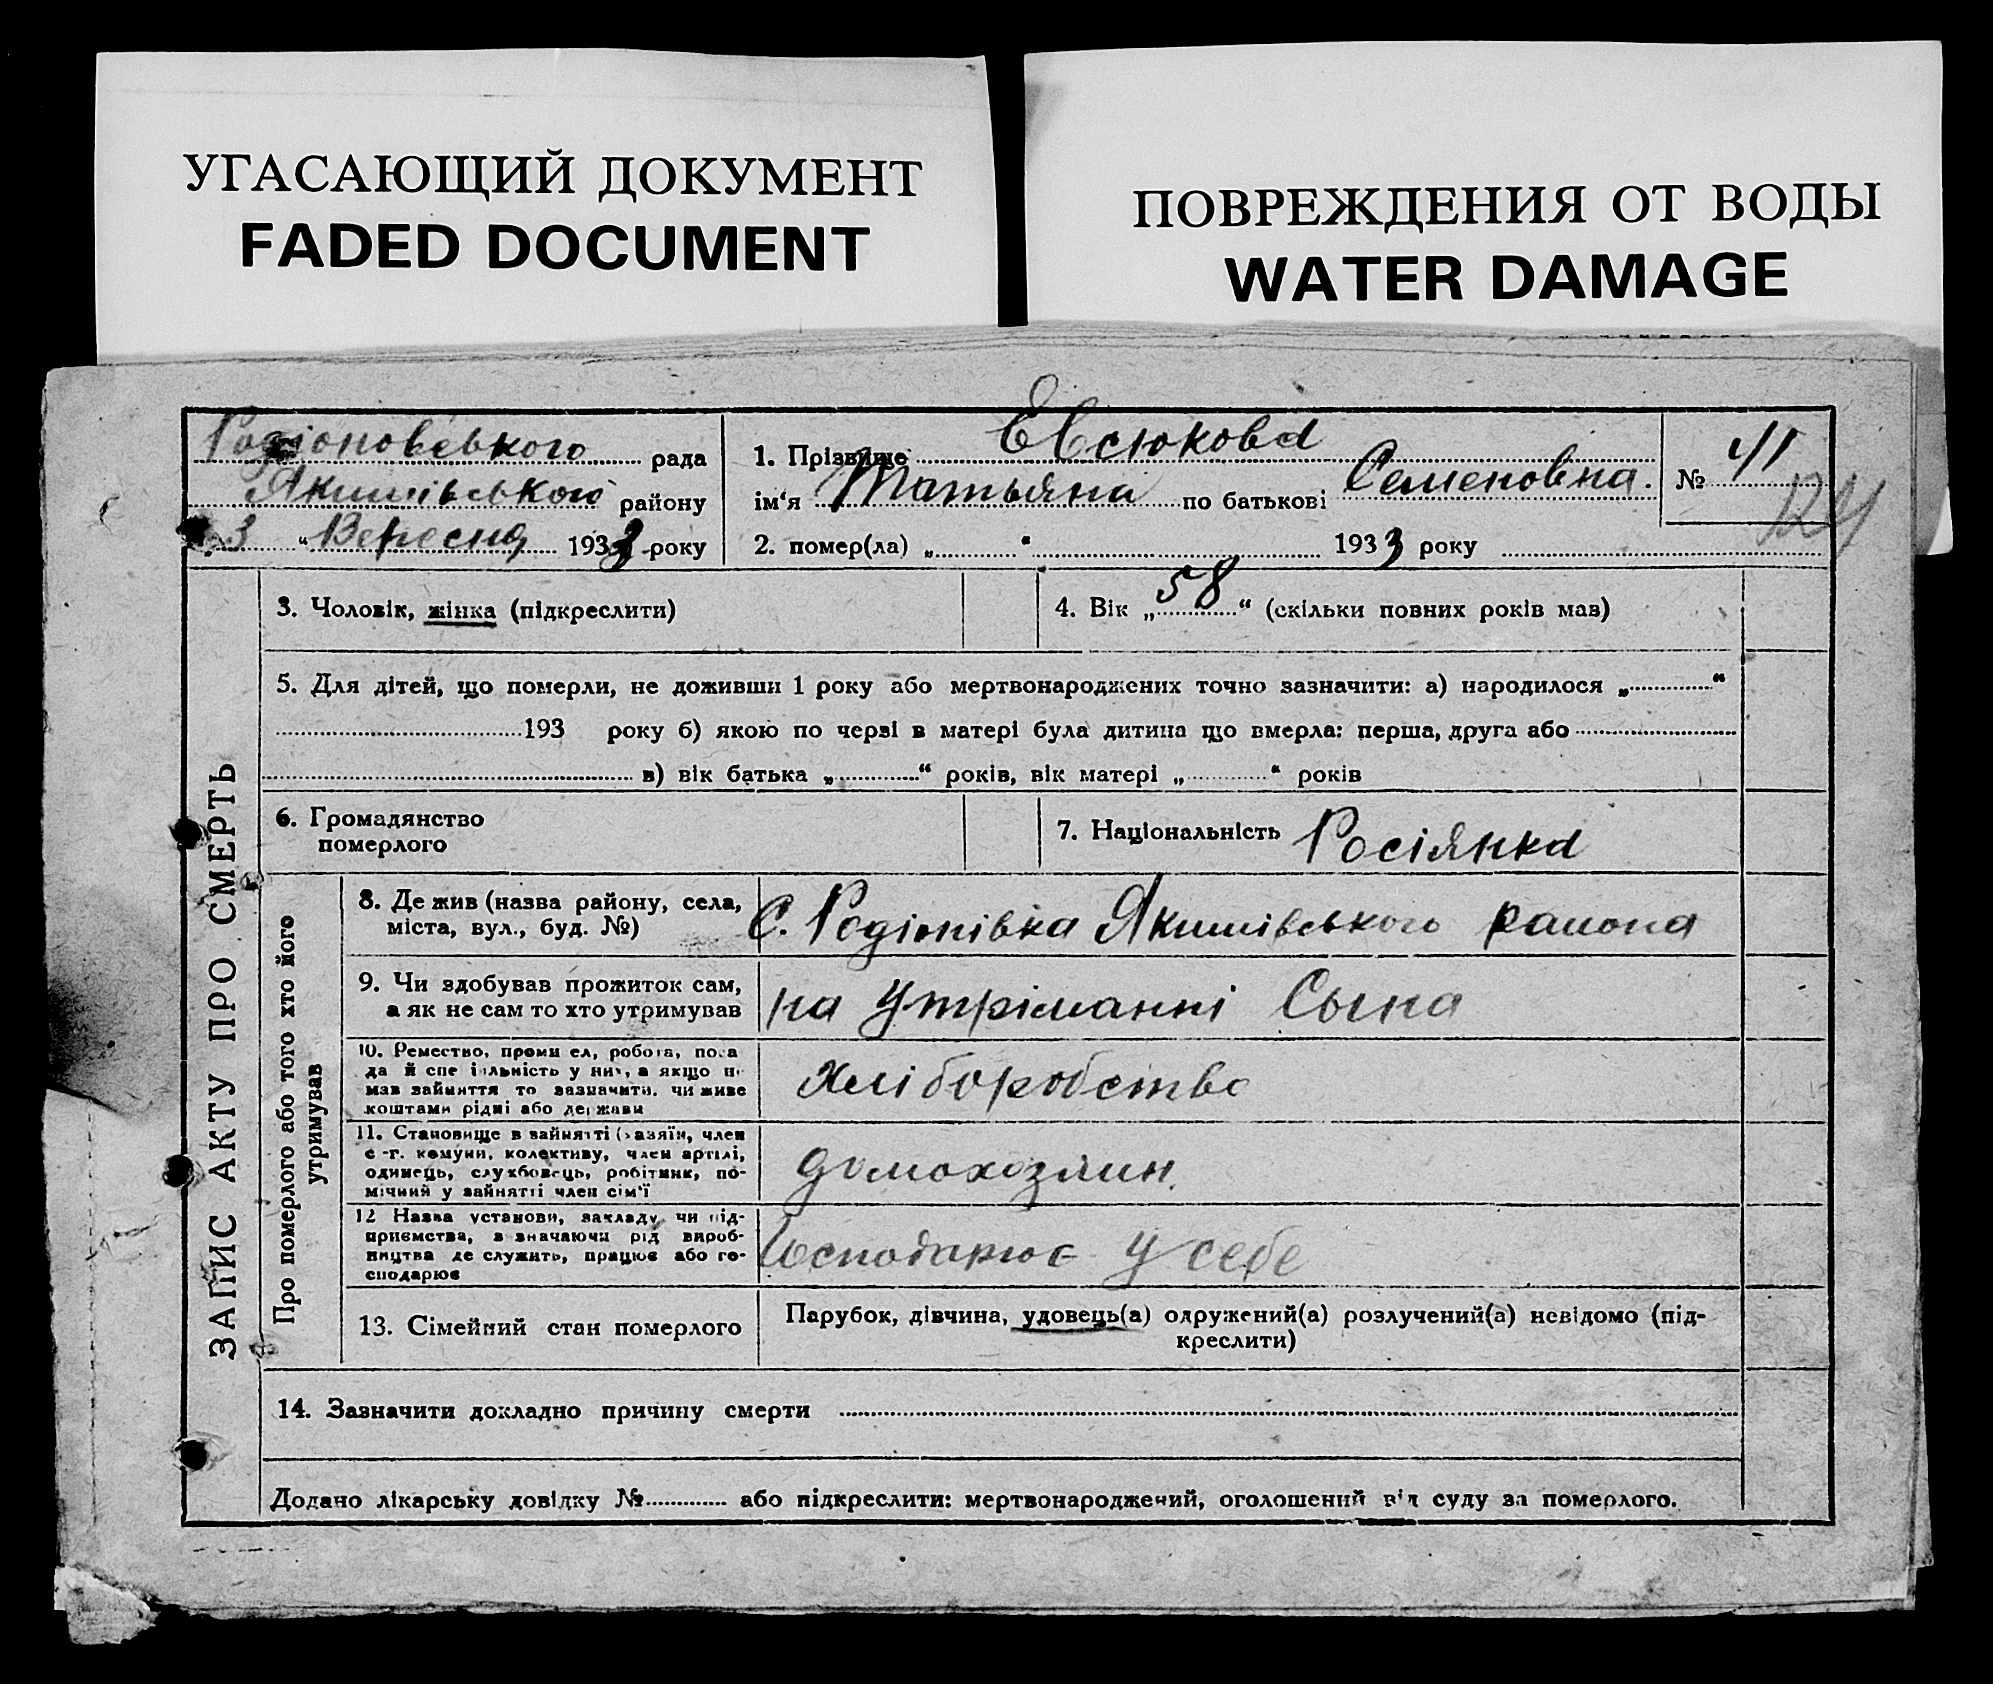 УГАСАЮЩИЙ ДОКУМЕНТ
FADED DOCUMENT
ПОВРЕЖДЕНИЯ ОТ ВОДЫ
WATER DAMAGE
Родіоновського рада
Якимівського району
3 " Вересня 1933 року
1. Прізвище Евсюкова
ім'я Татьяна по батькові Семеновна.
2. помер(ла) „ " 1933 року
№ 41
124
ЗАПИС АКТУ ПРО СМЕРТЬ
3. Чоловік, жінка (підкреслити)
4. Вік „58" (скільки повних років мав)
5. Для дітей, що померли, не доживши 1 року або мертвонароджених точно зазначити: а) народилося „ "
193 року б) якою по черві в матері була дитина що вмерла: перша, друга або
в) вік батька „ " років, вік матері „ " років
6. Громадянство
померлого
7. Національність Росіянка
Про померлого або того хто його
утримував
8. Де жив (назва району, села,
міста, вул., буд. №)
С. Родіонівка Якимівського района
9. Чи здобував прожиток сам,
а як не сам то хто утримував
на утріманні Сына
10. Ремество, промисел, робота, поса
да й спеціальність у них, а якщо не
мав зайняття то зазначити, чи живе
коштами рідні або держави
Хліборобство
11. Становище в зайнятті (хазяїн, член
с-г. комуни, колективу, член артілі,
одинець, службовець, робітник, по-
мічний у зайнятті член сім'ї
домохозяин.
12 Назва установи, закладу чи під-
приємства, зазначаючи рід вироб-
ництва де служить, працює або го-
сподарює
Господарює у себе
13. Сімейний стан померлого
Парубок, дівчина, удовець(а) одружений(а) розлучений(а) невідомо (під-
креслити)
14. Зазначити докладно причину смерти
Додано лікарську довідку № або підкреслити: мертвонароджений, оголошений від суду за померлого.